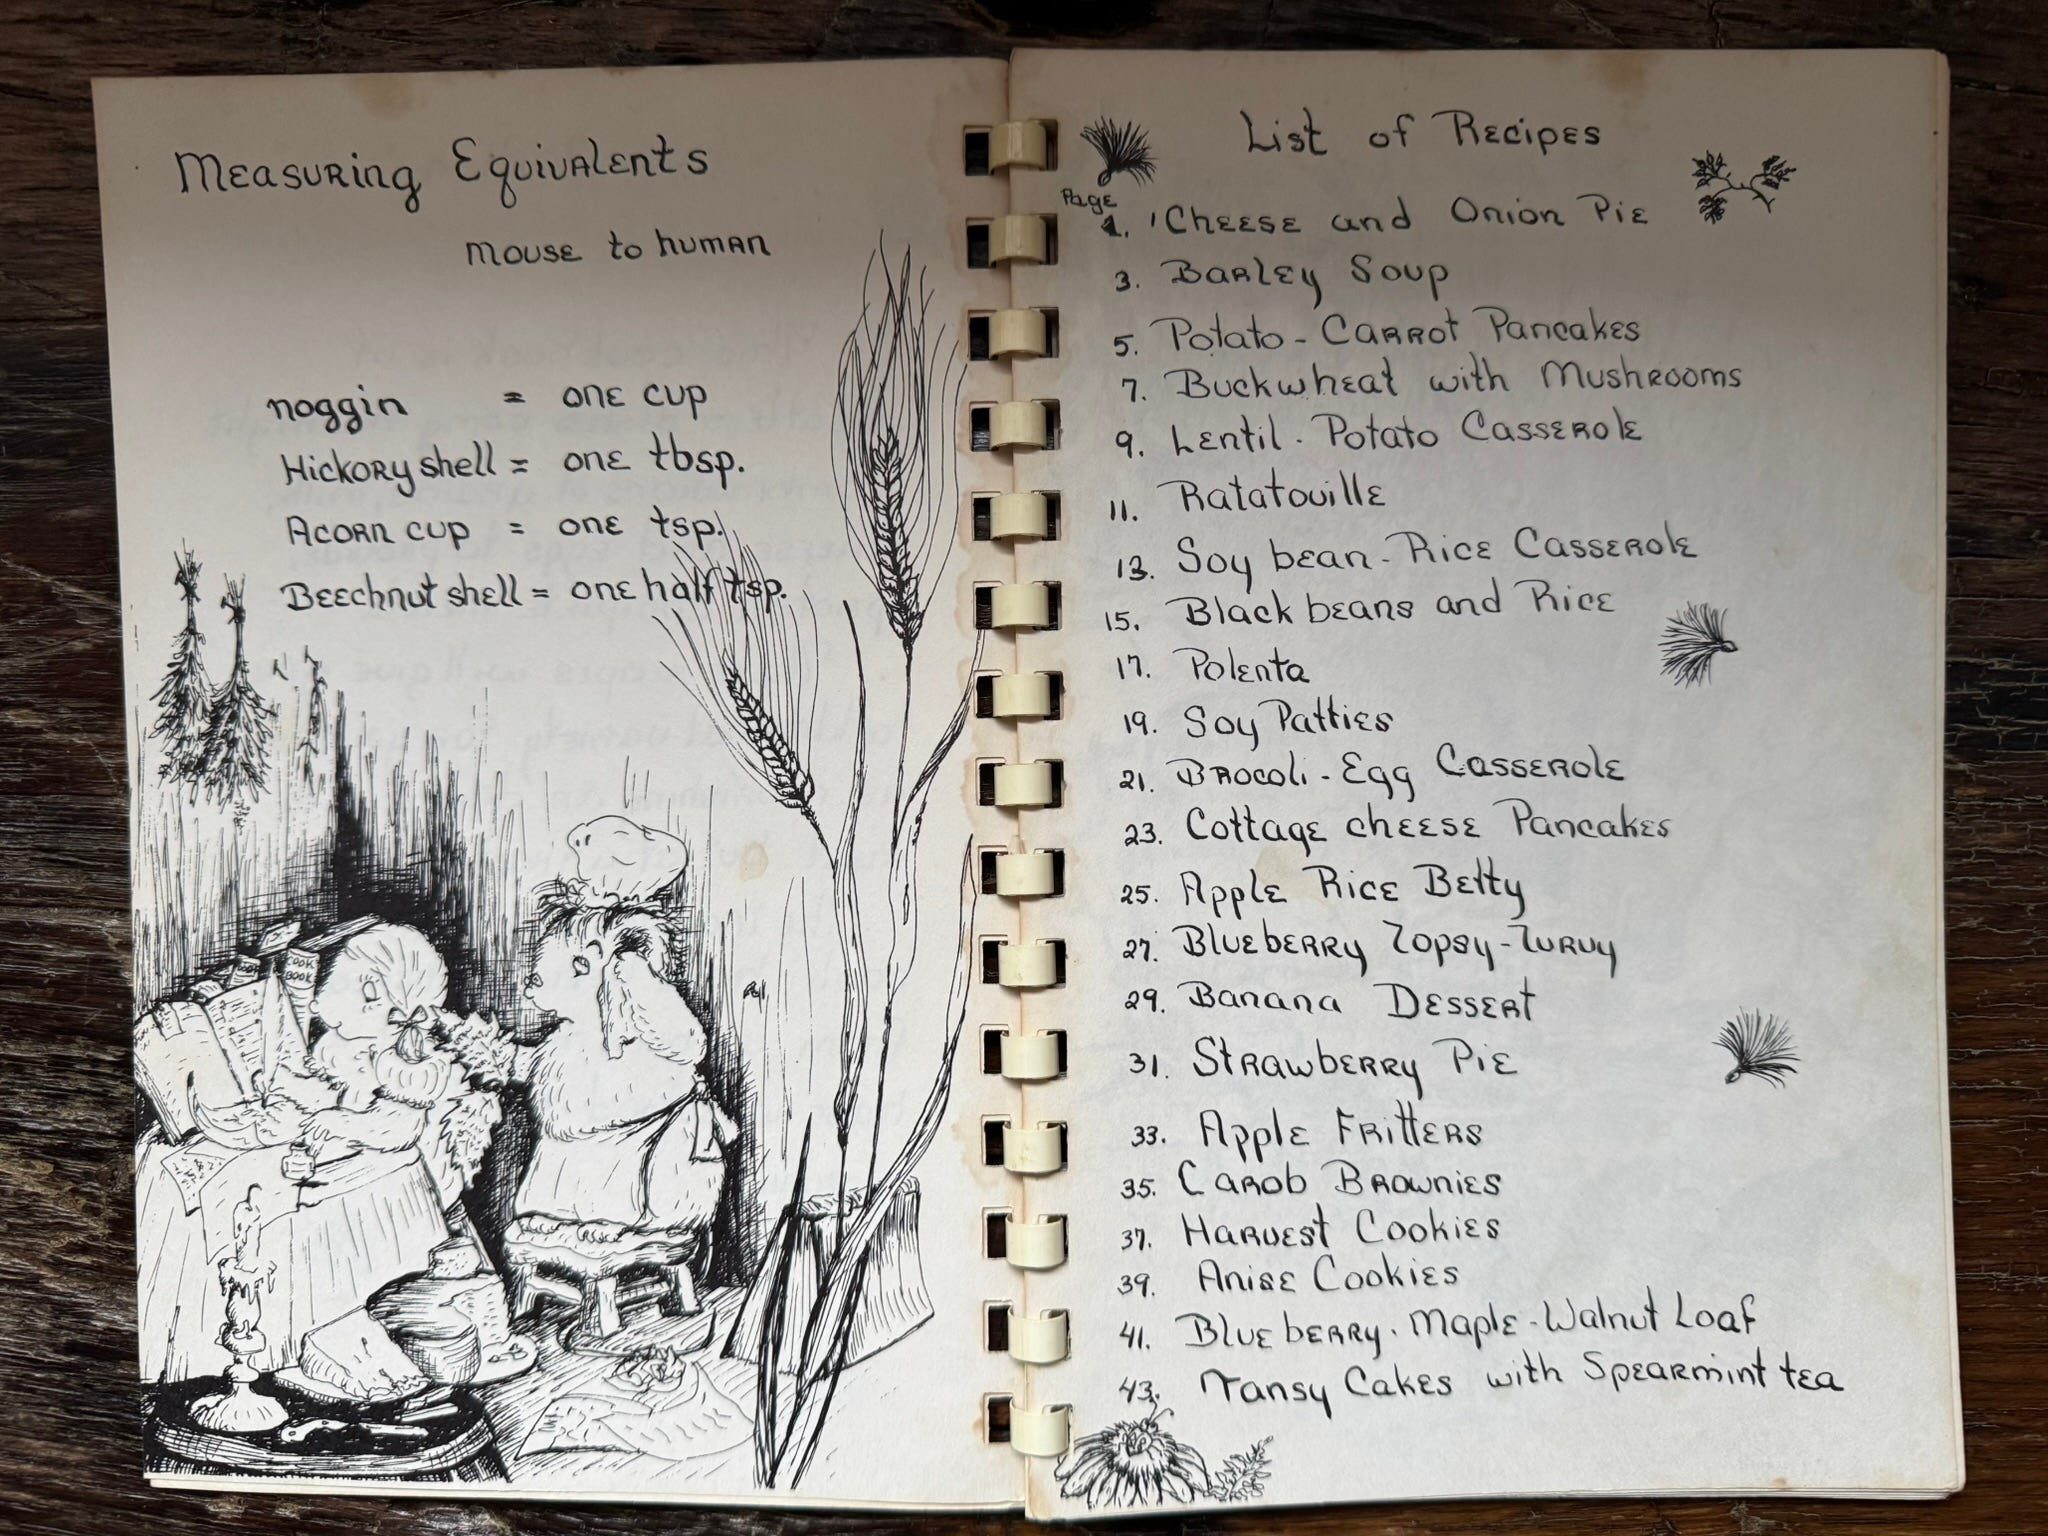 Measuring Equivalents
mouse to human
noggin = one cup
Hickory shell = one tbsp.
Acorn cup = one tsp.
Beechnut shell = one half tsp.
COOK
BOOK
List of Recipes
Page
1. Cheese and Onion Pie
3. Barley Soup
5. Potato - Carrot Pancakes
7. Buckwheat with Mushrooms
9. Lentil - Potato Casserole
11. Ratatouille
13. Soy bean - Rice Casserole
15. Black beans and Rice
17. Polenta
19. Soy Patties
21. Brocoli - Egg Casserole
23. Cottage cheese Pancakes
25. Apple Rice Betty
27. Blueberry Topsy-Turvy
29. Banana Dessert
31. Strawberry Pie
33. Apple Fritters
35. Carob Brownies
37. Harvest Cookies
39. Anise Cookies
41. Blueberry - Maple - Walnut Loaf
43. Tansy Cakes with Spearmint tea